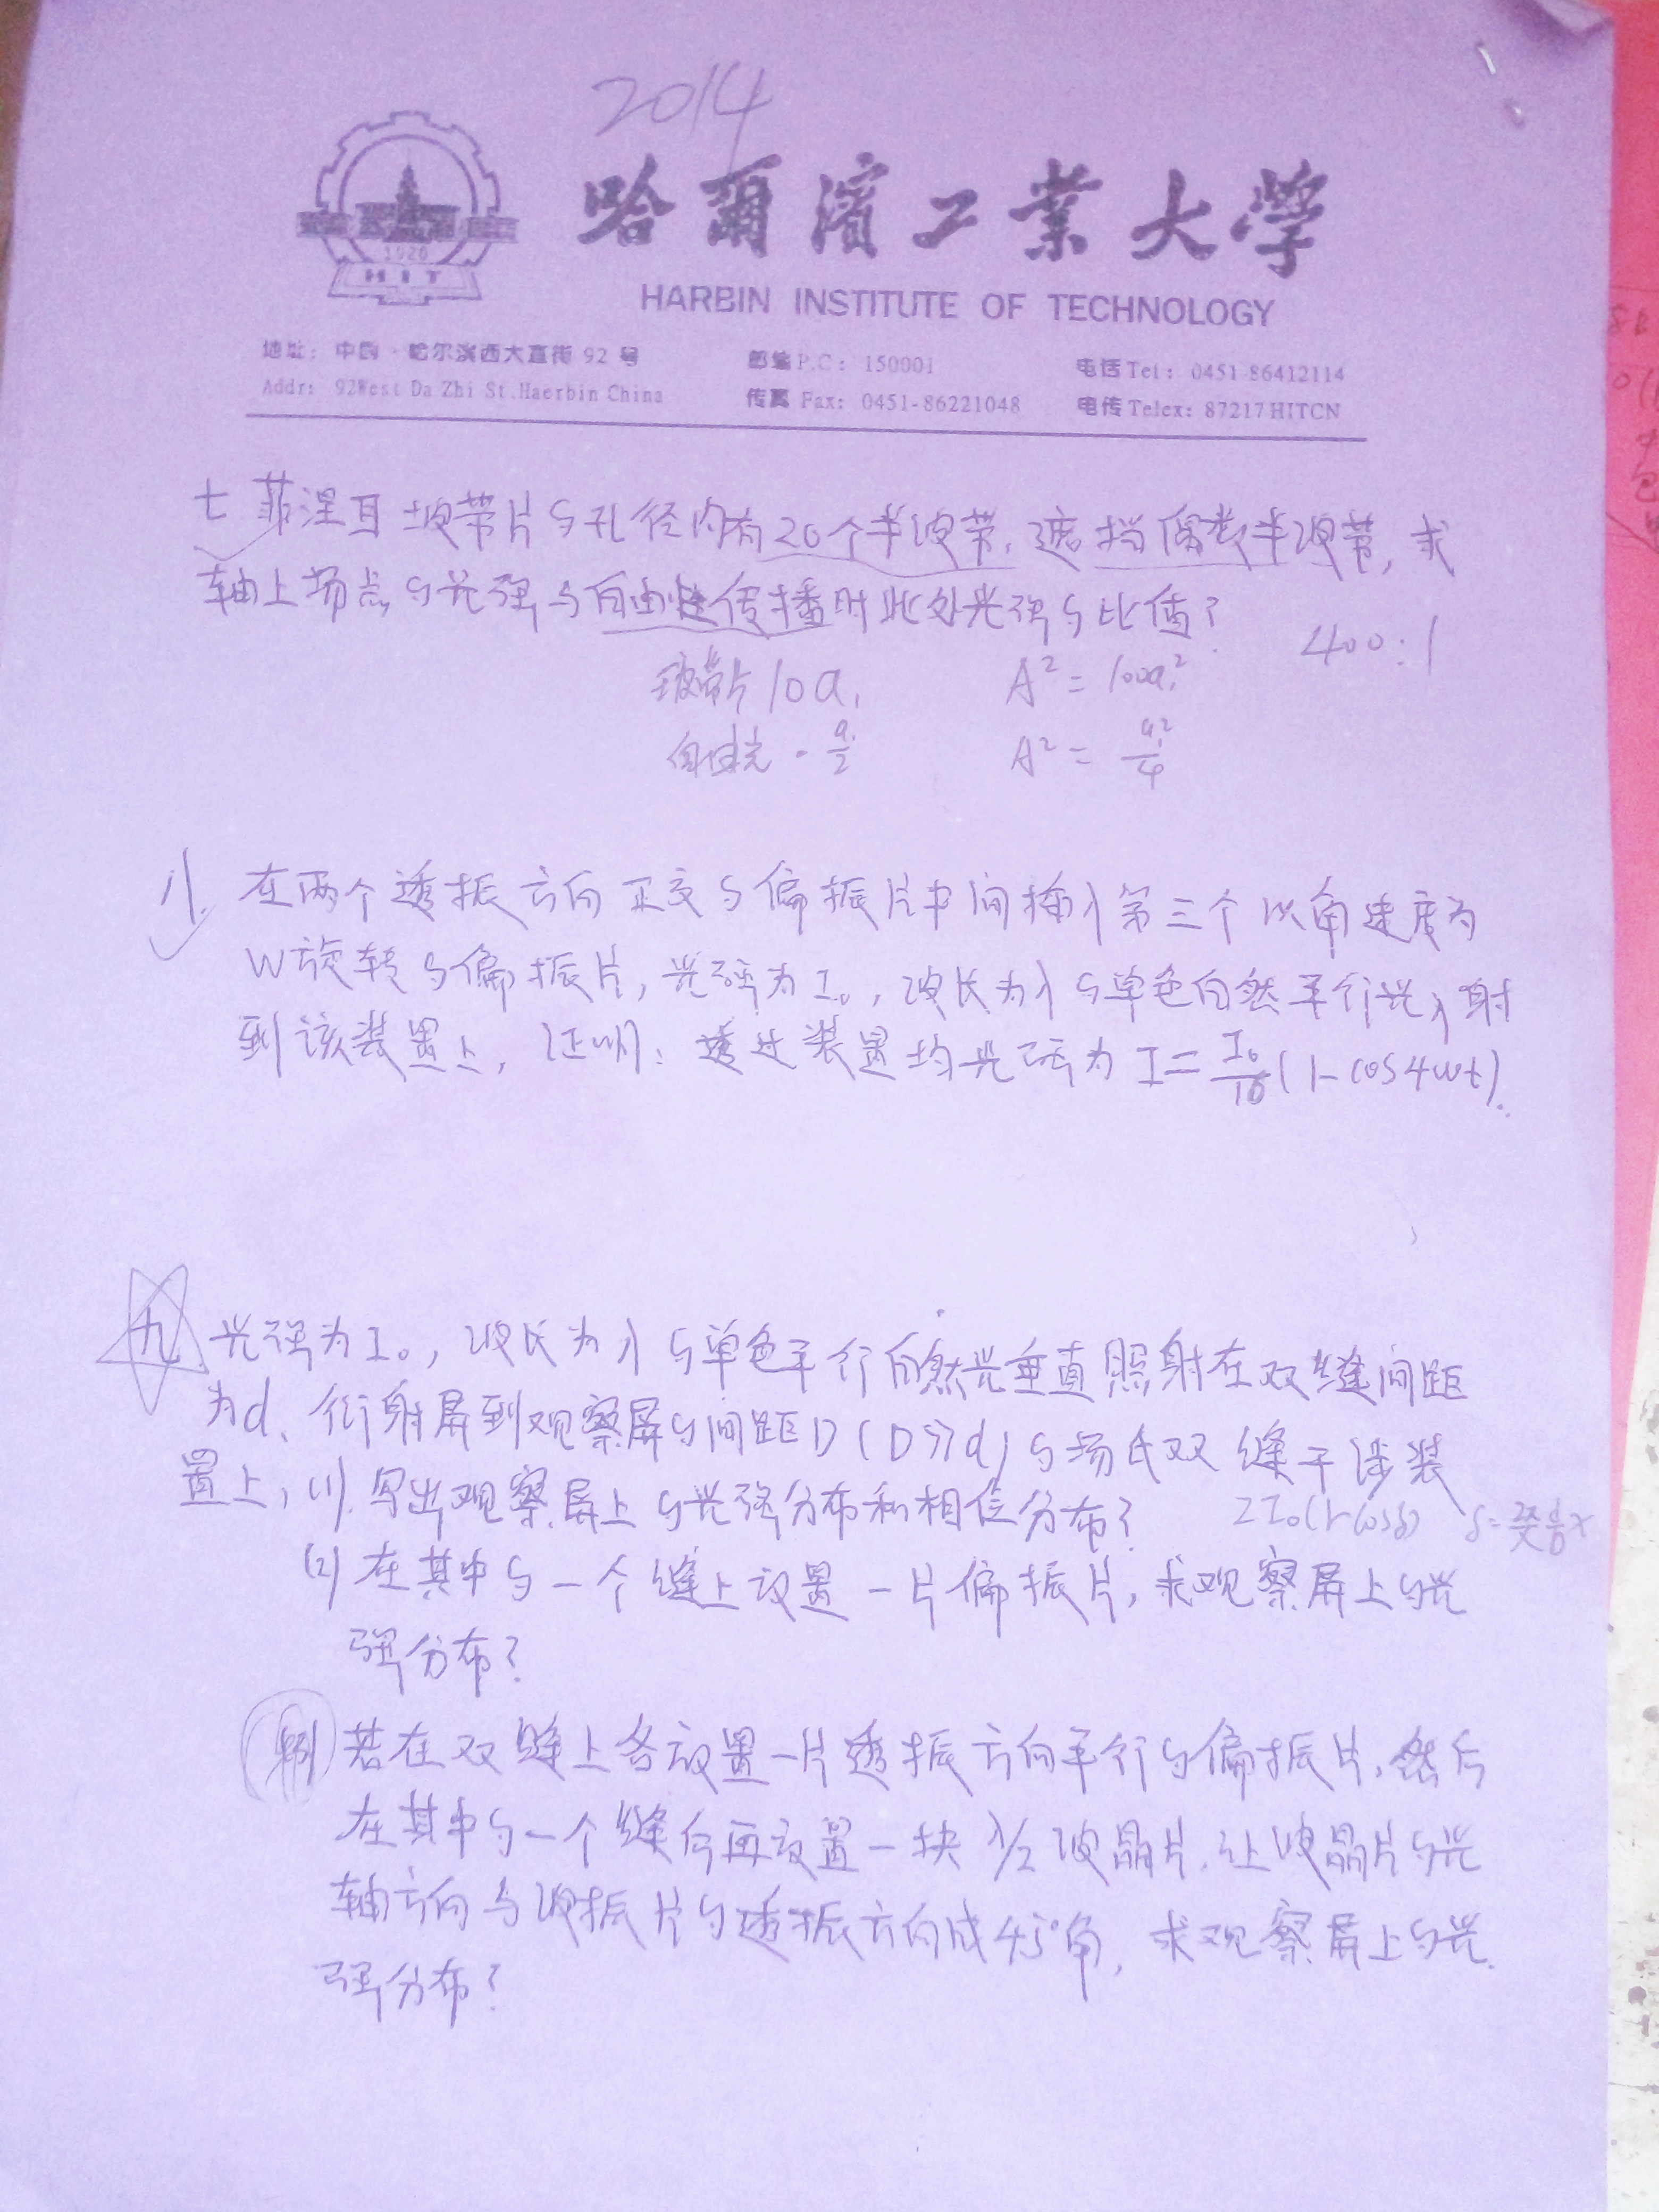 2014
哈爾濱工業大學
1920
HIT
HARBIN INSTITUTE OF TECHNOLOGY
地址：中国·哈尔滨西大直街 92 号 邮编 P.C：150001 电话 Tel：0451-86412114
Addr：92West Da Zhi St.Haerbin China 传真 Fax：0451-86221048 电传 Telex：87217HITCN
七 菲涅耳波带片的孔径内有20个半波带，遮挡偶数半波带，求
轴上场点的光强与自由传播时此处光强的比值？
400:1
波带片 10a₁ A² = 100a₁²
自由光 · a₁/2 A² = a₁²/4
八 在两个透振方向正交的偏振片中间插入第三个以角速度为
W旋转的偏振片，光强为I₀，波长为λ的单色自然平行光入射
到该装置上，证明：透过装置的光强为 I = I₀/16 (1-cos4wt).
九 光强为I₀，波长为λ的单色平行自然光垂直照射在双缝间距
为d、衍射屏到观察屏的间距D（D≫d）的杨氏双缝干涉装
置上，(1). 写出观察屏上的光强分布和相位分布？ 2I₀(1+cosδ) δ=2π/λ d/D x
(2) 在其中的一个缝上放置一片偏振片，求观察屏上的光
强分布？
若在双缝上各放置一片透振方向平行的偏振片，然后
在其中的一个缝后再放置一块λ/2波晶片，让波晶片的光
轴方向与偏振片的透振方向成45°角，求观察屏上的光
强分布？